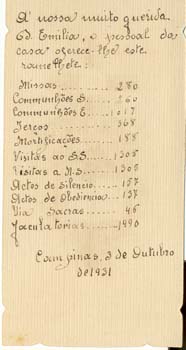 A' nossa muito querida
Cd. Emilia, o pessoal da
casa oferece-lhe este
ramelhete:
Missas 280
Communhões S. 260
Communhões E. 1017
Terços 368
Mortificações 188
Visitas ao SS 1305
Visitas a N.S. 1305
Actos de Silencio 157
Actos de Obediencia 137
Via Sacras 46
Jaculatorias 1990
Campinas, 3 de Outubro
de 1931